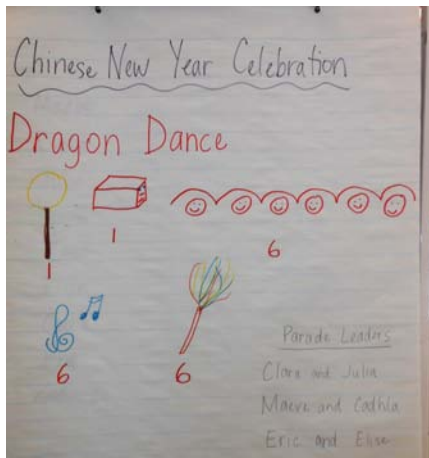 Chinese New Year Celebration
Dragon Dance
1
1
6
6
6
Parade Leaders
Clara and Julia
Maeve and Cadhla
Eric and Elise